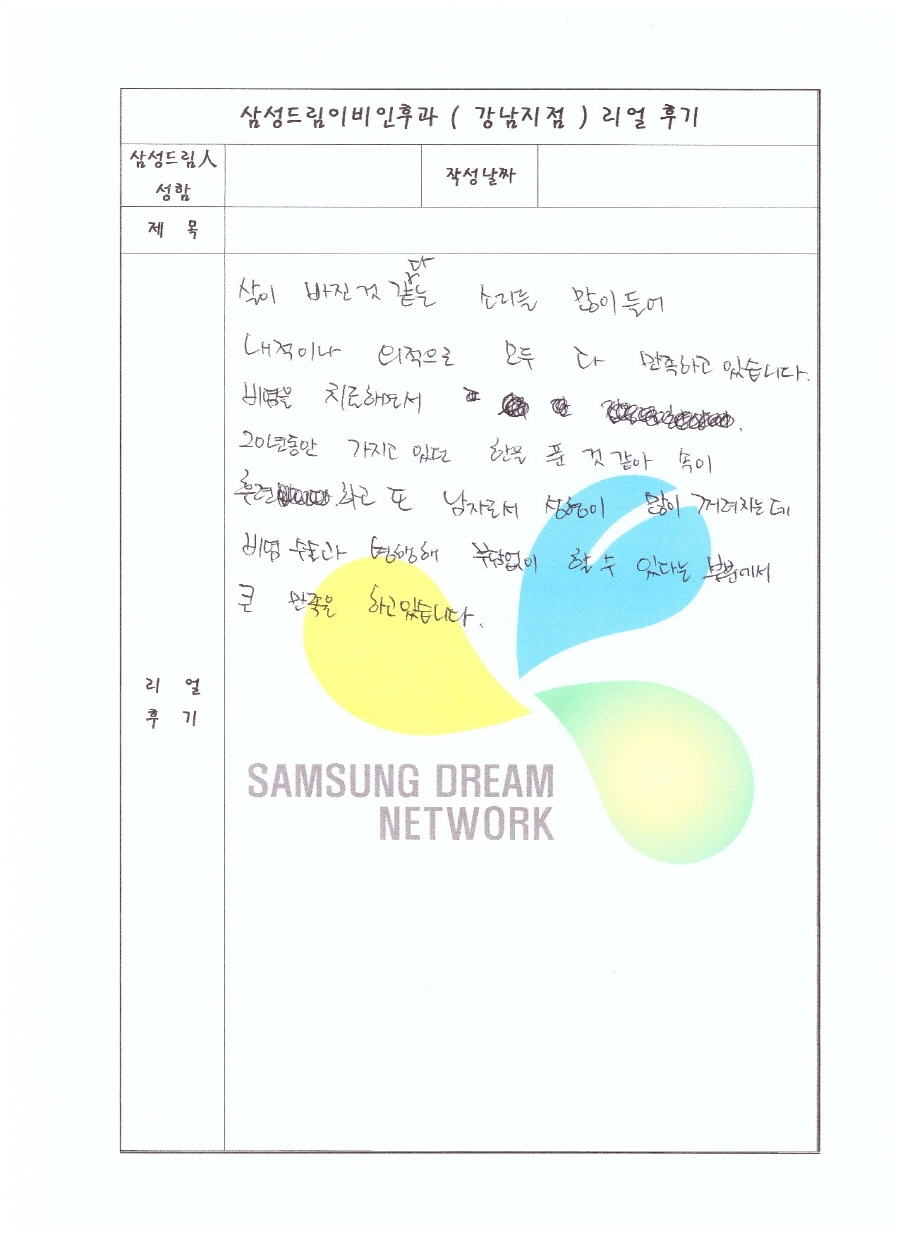 삼성드림이비인후과 ( 강남지점 ) 리얼 후기
삼성드림人
성함
작성날짜
제 목
살이 빠진것 같다는 소리를 많이 들어
내적이나 외적으로 모두 다 만족하고 있습니다.
비염을 치료해면서
20년동안 가지고 있던 한을 푼 것 같아 속이
후련 하고 또 남자로서 성형이 많이 꺼려지는데
비염 수술과 병행해 부담없이 할 수 있다는 부분에서
큰 만족을 하고있습니다.
리 얼
후 기
SAMSUNG DREAM
NETWORK